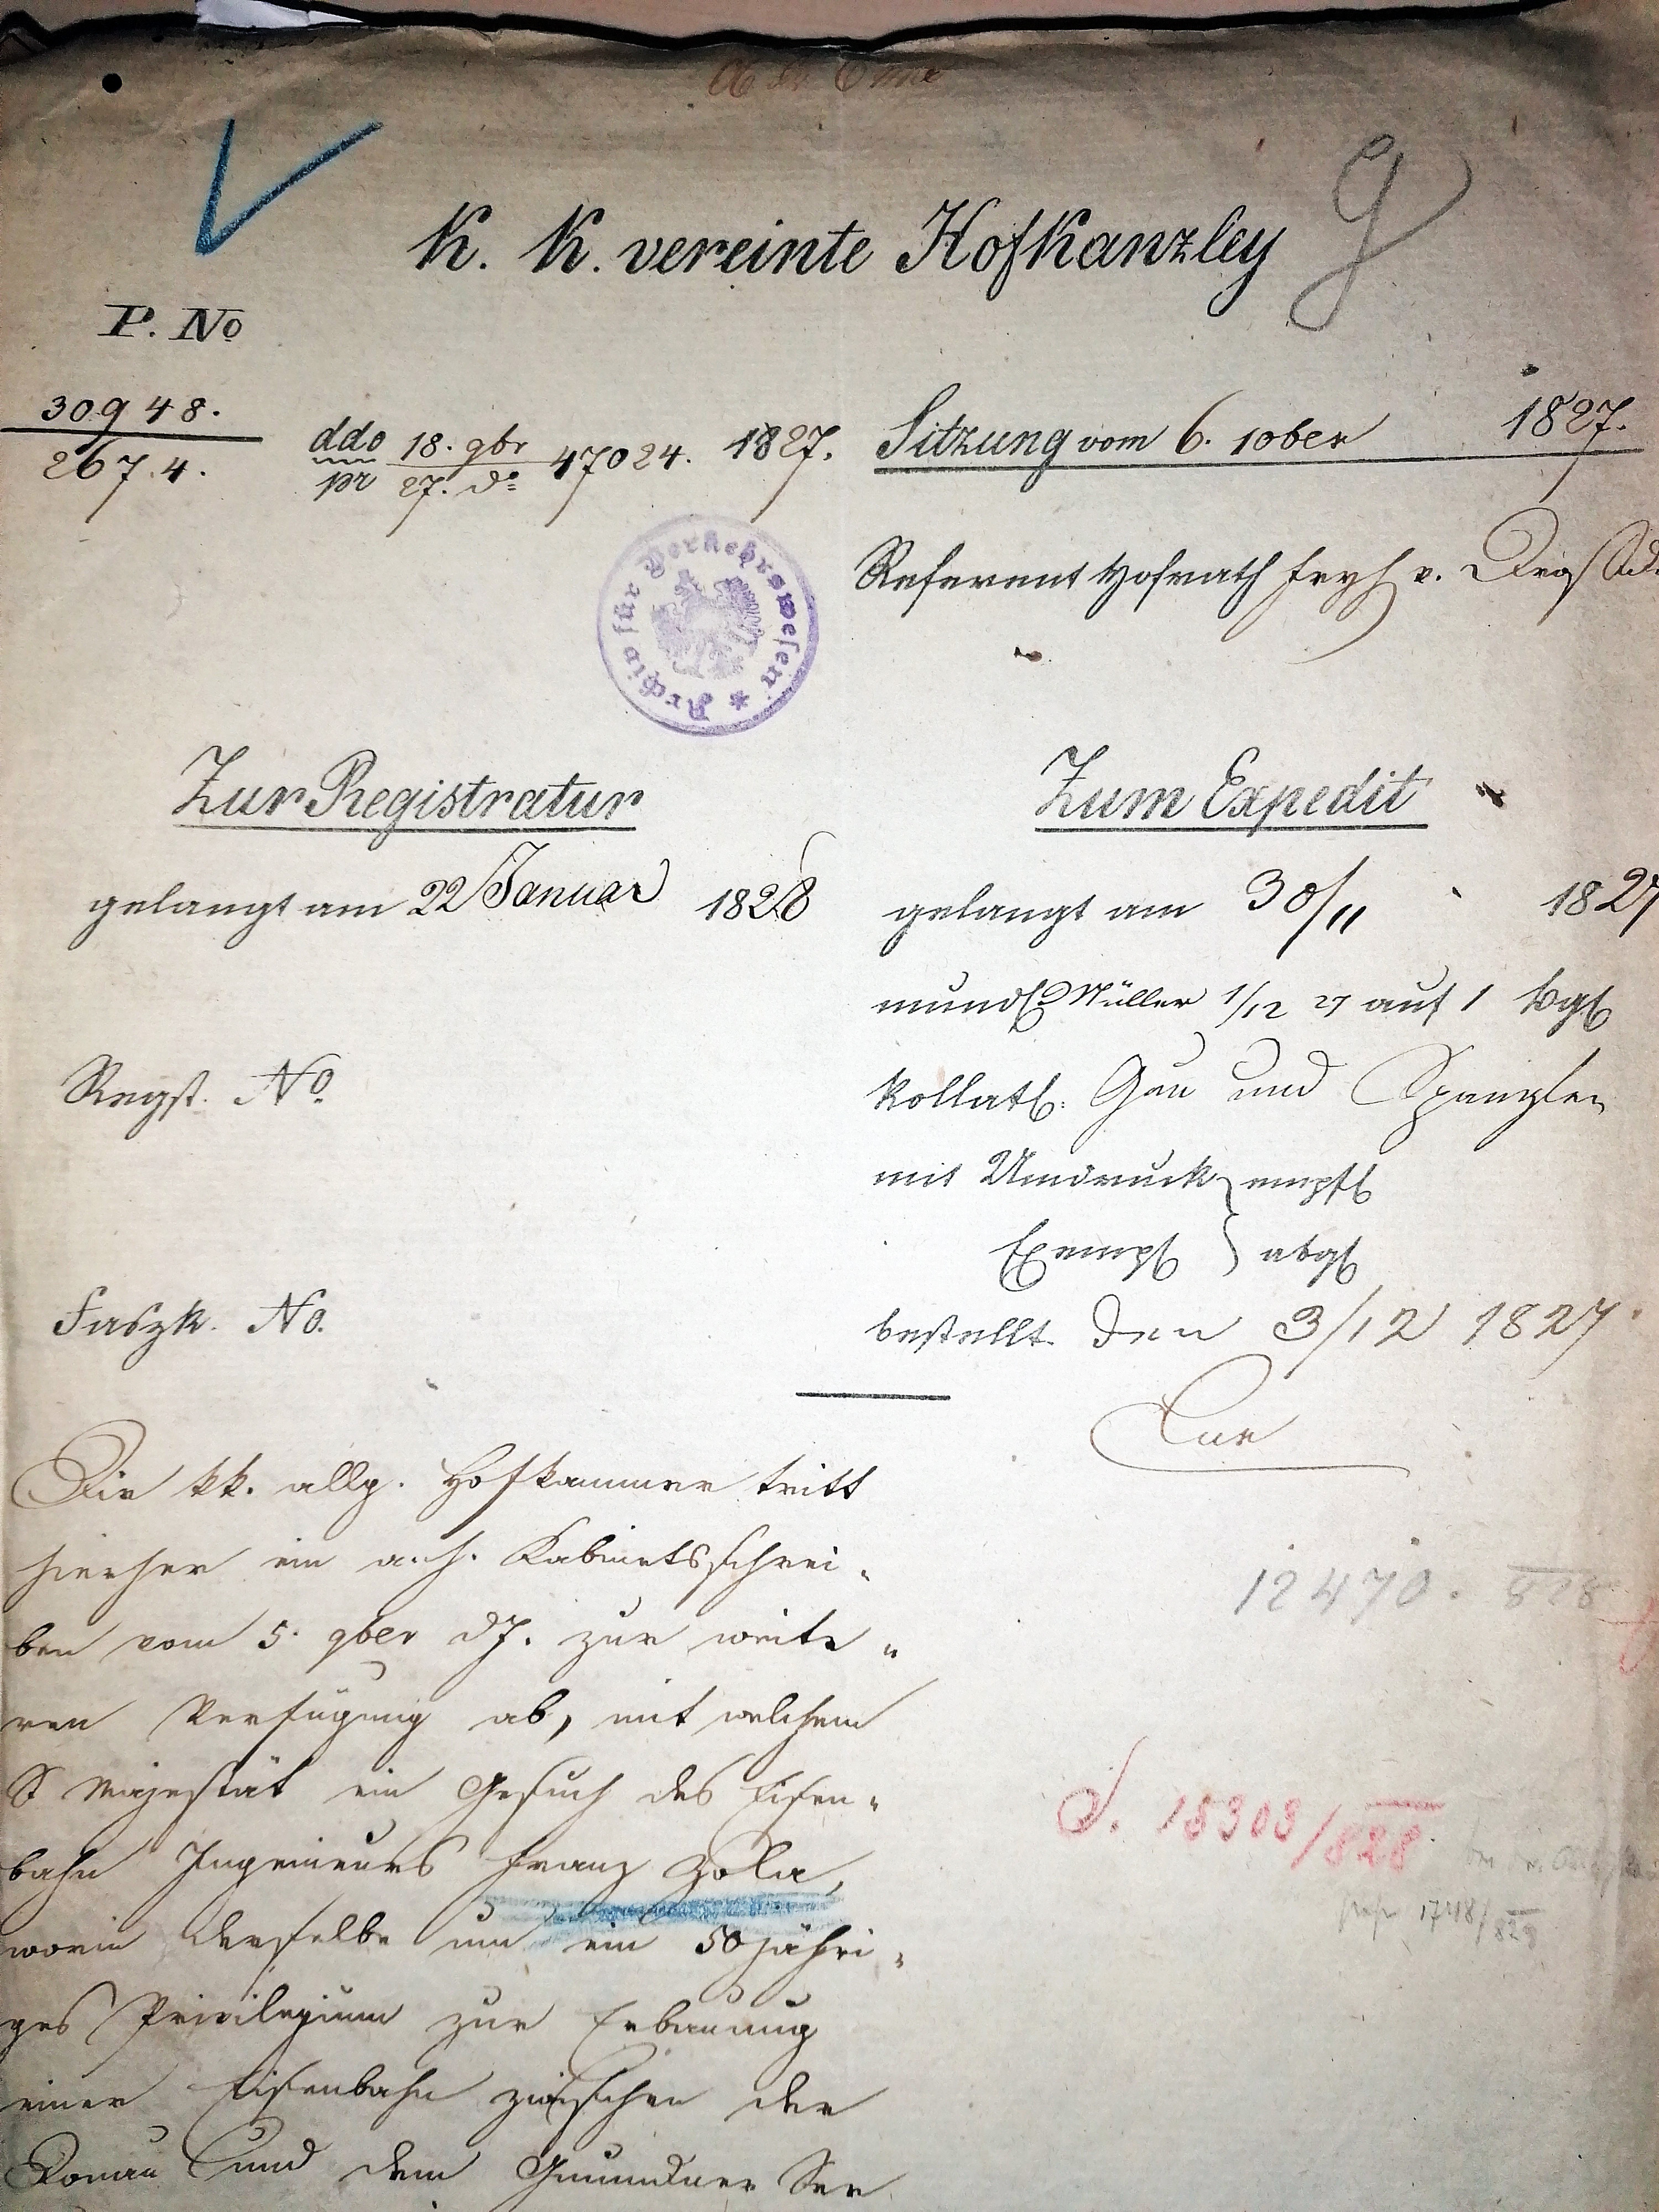 K. K. vereinte Hofkanzley
P. No
30948.
2674.
ddo 18. 9br 47024. 1827.
pr 27. do
Sitzung vom 6. 10ber 1827.
Referent Hofrath Freyh v.
Archiv für Verkehrswesen *
Zur Registratur
gelangt am 22 Januar 1828
Regst. No.
Faszk. No.
Zum Expedit
gelangt am 30/11 1827
mund. Müller 1/12 27 auf 1 Bg
kollat. und
mit Umdruck empf
Exempl abg
bestellt den 3/12 1827
Die kk. allg. Hofkammer tritt
hierher ein a. h. Kabinetsschrei-
ben vom 5. 9ber dJ. zur weite-
ren Verfügung ab, mit welchem
S Majestät ein Gesuch des Eisen-
bahn Ingenieurs Franz Zola,
worin derselbe um ein 50jähri-
ges Privilegium zur Erbauung
einer Eisenbahn zwischen der
Donau und dem Gmundner See
12470. 828
S. 15303/828
1748/829